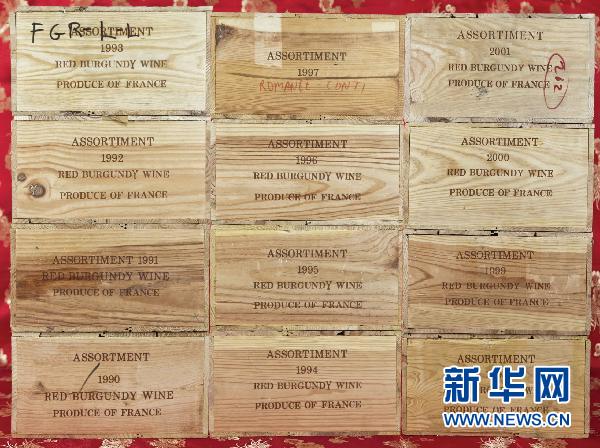 FGR-LL
ASSORTMENT
1993
RED BURGUNDY WINE
PRODUCE OF FRANCE
ASSORTIMENT
1997
ROMANÉE CONTI
RED BURGUNDY WINE
PRODUCE OF FRANCE
ASSORTIMENT
2001
RED BURGUNDY WINE
PRODUCE OF FRANCE
212
ASSORTIMENT
1992
RED BURGUNDY WINE
PRODUCE OF FRANCE
ASSORTIMENT
1996
RED BURGUNDY WINE
PRODUCE OF FRANCE
ASSORTIMENT
2000
RED BURGUNDY WINE
PRODUCE OF FRANCE
ASSORTIMENT 1991
RED BURGUNDY WINE
PRODUCE OF FRANCE
ASSORTIMENT
1995
RED BURGUNDY WINE
PRODUCE OF FRANCE
ASSORTIMENT
1999
RED BURGUNDY WINE
PRODUCE OF FRANCE
ASSORTIMENT
1990
RED BURGUNDY WINE
PRODUCE OF FRANCE
ASSORTIMENT
1994
RED BURGUNDY WINE
PRODUCE OF FRANCE
ASSORTIMENT
新华网
WWW.NEWS.CN